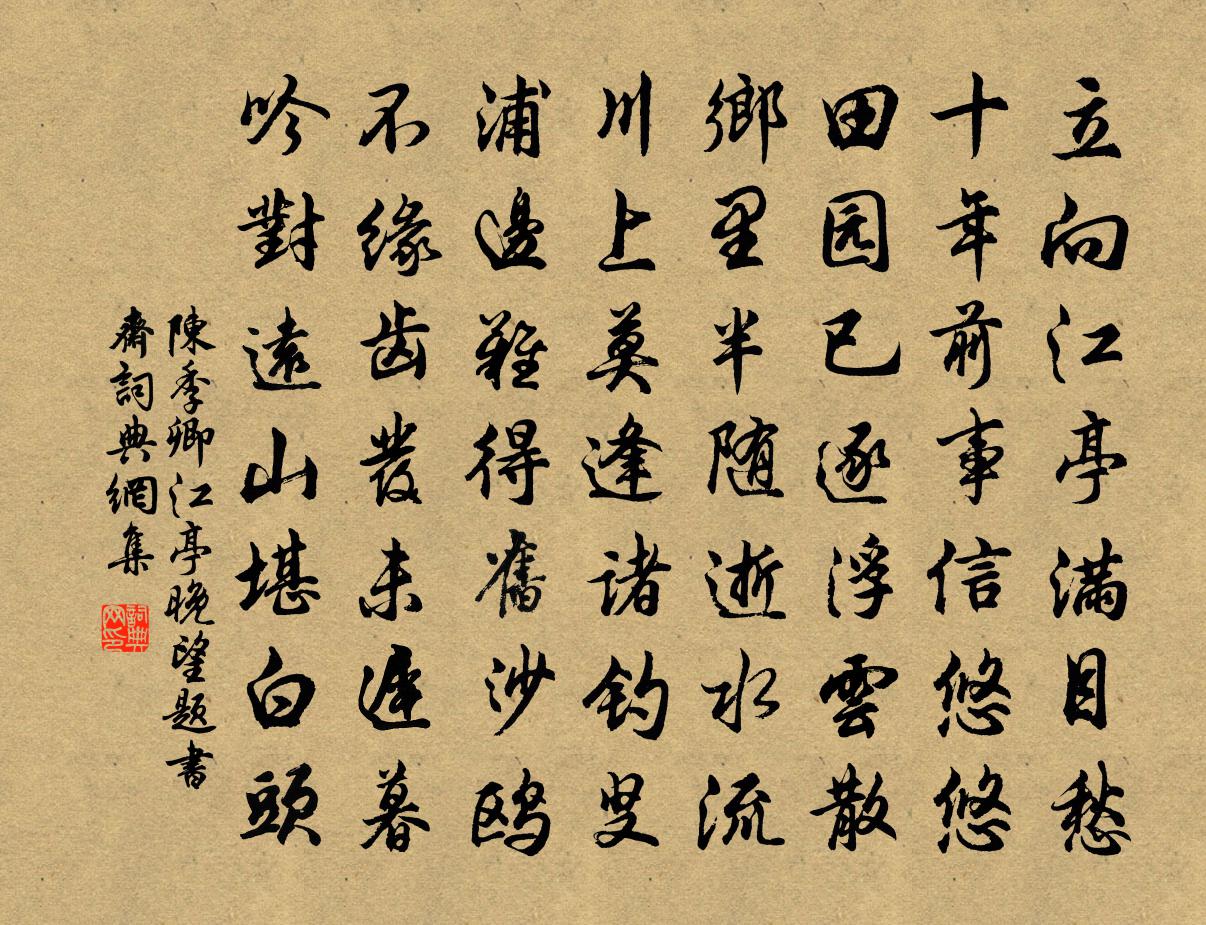 立向江亭满目愁
十年前事信悠悠
田园已逐浮雲散
鄉里半随逝水流
川上莫逢诸钓叟
浦邊難得舊沙鸥
不缘齿发未遲暮
吟對遠山堪白頭
陳季卿江亭晚望題書
齋詞典網集
詞典网印